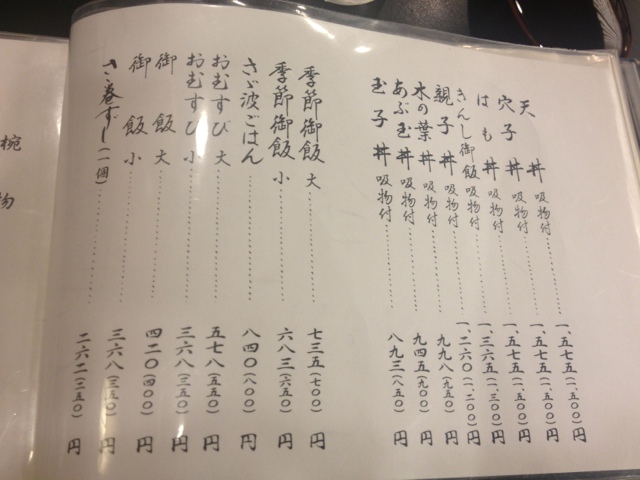 天丼 吸物付………一、五七五(一、五〇〇)円
穴子丼 吸物付………一、五七五(一、五〇〇)円
はも丼 吸物付………一、五七五(一、五〇〇)円
きんし御飯 吸物付………一、三六五(一、三〇〇)円
親子丼 吸物付………一、二六〇(一、二〇〇)円
木の葉丼 吸物付………九九八(九五〇)円
あぶ玉丼 吸物付………九四五(九〇〇)円
玉子丼 吸物付………八九三(八五〇)円
季節御飯 大………七三五(七〇〇)円
季節御飯 小………六八三(六五〇)円
さゞ波ごはん………八四〇(八〇〇)円
おむすび 大………五七八(五五〇)円
おむすび 小………三六八(三五〇)円
御飯 大………四二〇(四〇〇)円
御飯 小………三六八(三五〇)円
さゝ巻ずし(一個)………二六二(二五〇)円
椀物